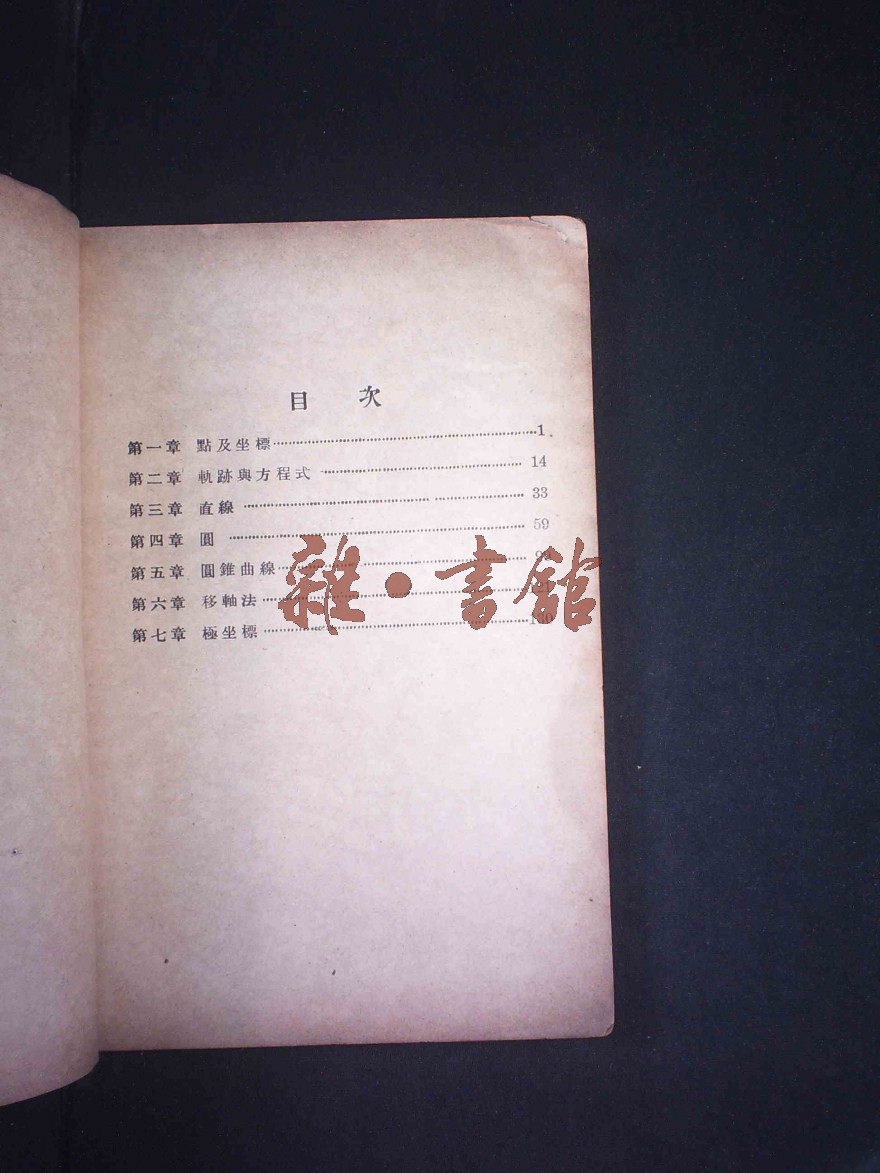 目 次
第一章 點及坐標 1
第二章 軌跡與方程式 14
第三章 直線 33
第四章 圓 59
第五章 圓錐曲線
第六章 移軸法
第七章 極坐標
雜·書館